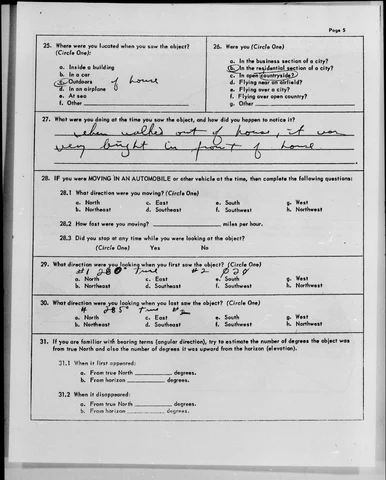 Page 5
25. Where were you located when you saw the object?
(Circle One):
a. Inside a building
b. In a car
c. Outdoors of house
d. In an airplane
e. At sea
f. Other
26. Were you (Circle One)
a. In the business section of a city?
b. In the residential section of a city?
c. In open countryside?
d. Flying near an airfield?
e. Flying over a city?
f. Flying over open country?
g. Other
27. What were you doing at the time you saw the object, and how did you happen to notice it?
when walked out of house, it was
very bright in front of house
28. IF you were MOVING IN AN AUTOMOBILE or other vehicle at the time, then complete the following questions:
28.1 What direction were you moving? (Circle One)
a. North c. East e. South g. West
b. Northeast d. Southeast f. Southwest h. Northwest
28.2 How fast were you moving? miles per hour.
28.3 Did you stop at any time while you were looking at the object?
(Circle One) Yes No
29. What direction were you looking when you first saw the object? (Circle One)
#1 280° True #2
a. North c. East e. South g. West
b. Northeast d. Southeast f. Southwest h. Northwest
30. What direction were you looking when you last saw the object? (Circle One)
# 285° True #2
a. North c. East e. South g. West
b. Northeast d. Southeast f. Southwest h. Northwest
31. If you are familiar with bearing terms (angular direction), try to estimate the number of degrees the object was
from true North and also the number of degrees it was upward from the horizon (elevation).
31.1 When it first appeared:
a. From true North degrees.
b. From horizon degrees.
31.2 When it disappeared:
a. From true North degrees.
b. From horizon degrees.